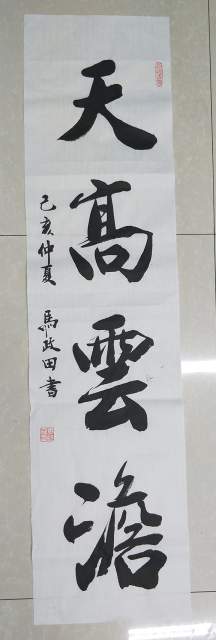 天高雲澹
己亥仲夏 馬政田書